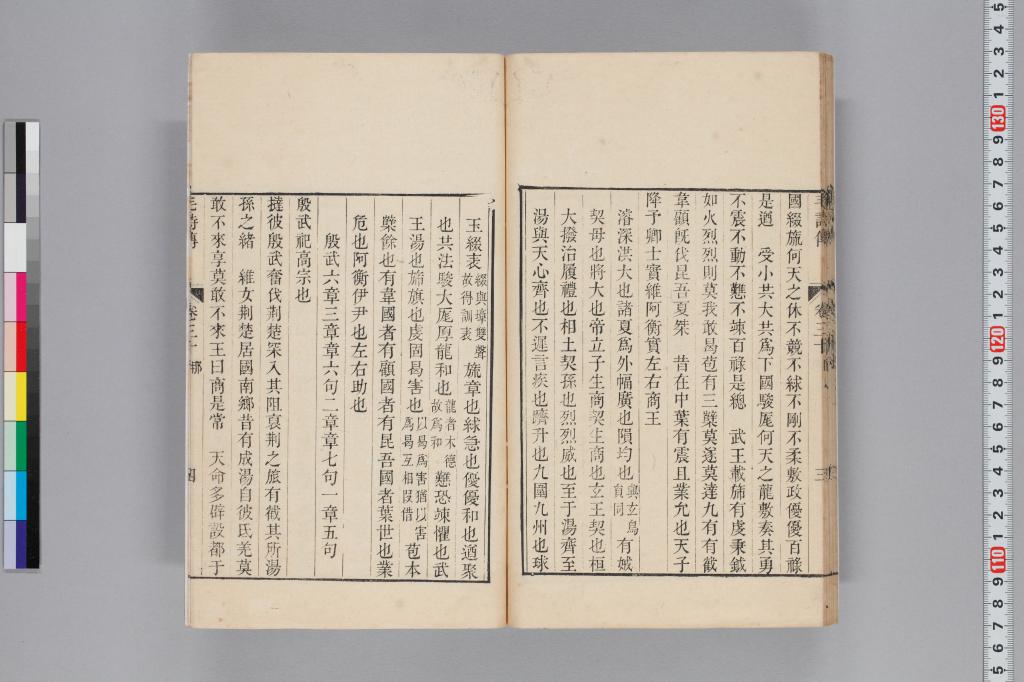 國綴旒何天之休不競不絿不剛不柔敷政優優百祿
是遒　受小共大共爲下國駿厖何天之龍敷奏其勇
不震不動不戁不竦百祿是總　武王載斾有虔秉鉞
如火烈烈則莫我敢曷苞有三櫱莫遂莫達九有有截
韋顧旣伐昆吾夏桀　昔在中葉有震且業允也天子
降予卿士實維阿衡實左右商王
濬深洪大也諸夏爲外幅廣也隕均也與玄鳥有娀
契母也將大也帝立子生商契生商也玄王契也桓
大撥治履禮也相土契孫也烈烈威也至于湯齊至
湯與天心齊也不遲言疾也躋升也九圍九州也球
玉綴表綴與墇雙聲故得訓表旒章也絿急也優優和也遒聚
也共法駿大厖厚龍和也龍者木德故爲和戁恐竦懼也武
王湯也斾旗也虔固曷害也以曷爲害猶以害爲曷互相叚借苞本
櫱餘也有韋國者有顧國者有昆吾國者葉世也業
危也阿衡伊尹也左右助也
殷武六章三章章六句二章章七句一章五句
殷武祀高宗也
撻彼殷武奮伐荆楚罙入其阻裒荆之旅有截其所湯
孫之緖　維女荆楚居國南鄉昔有成湯自彼氐羌莫
敢不來享莫敢不來王曰商是常　天命多辟設都于
毛詩傳　卷三十　那　四